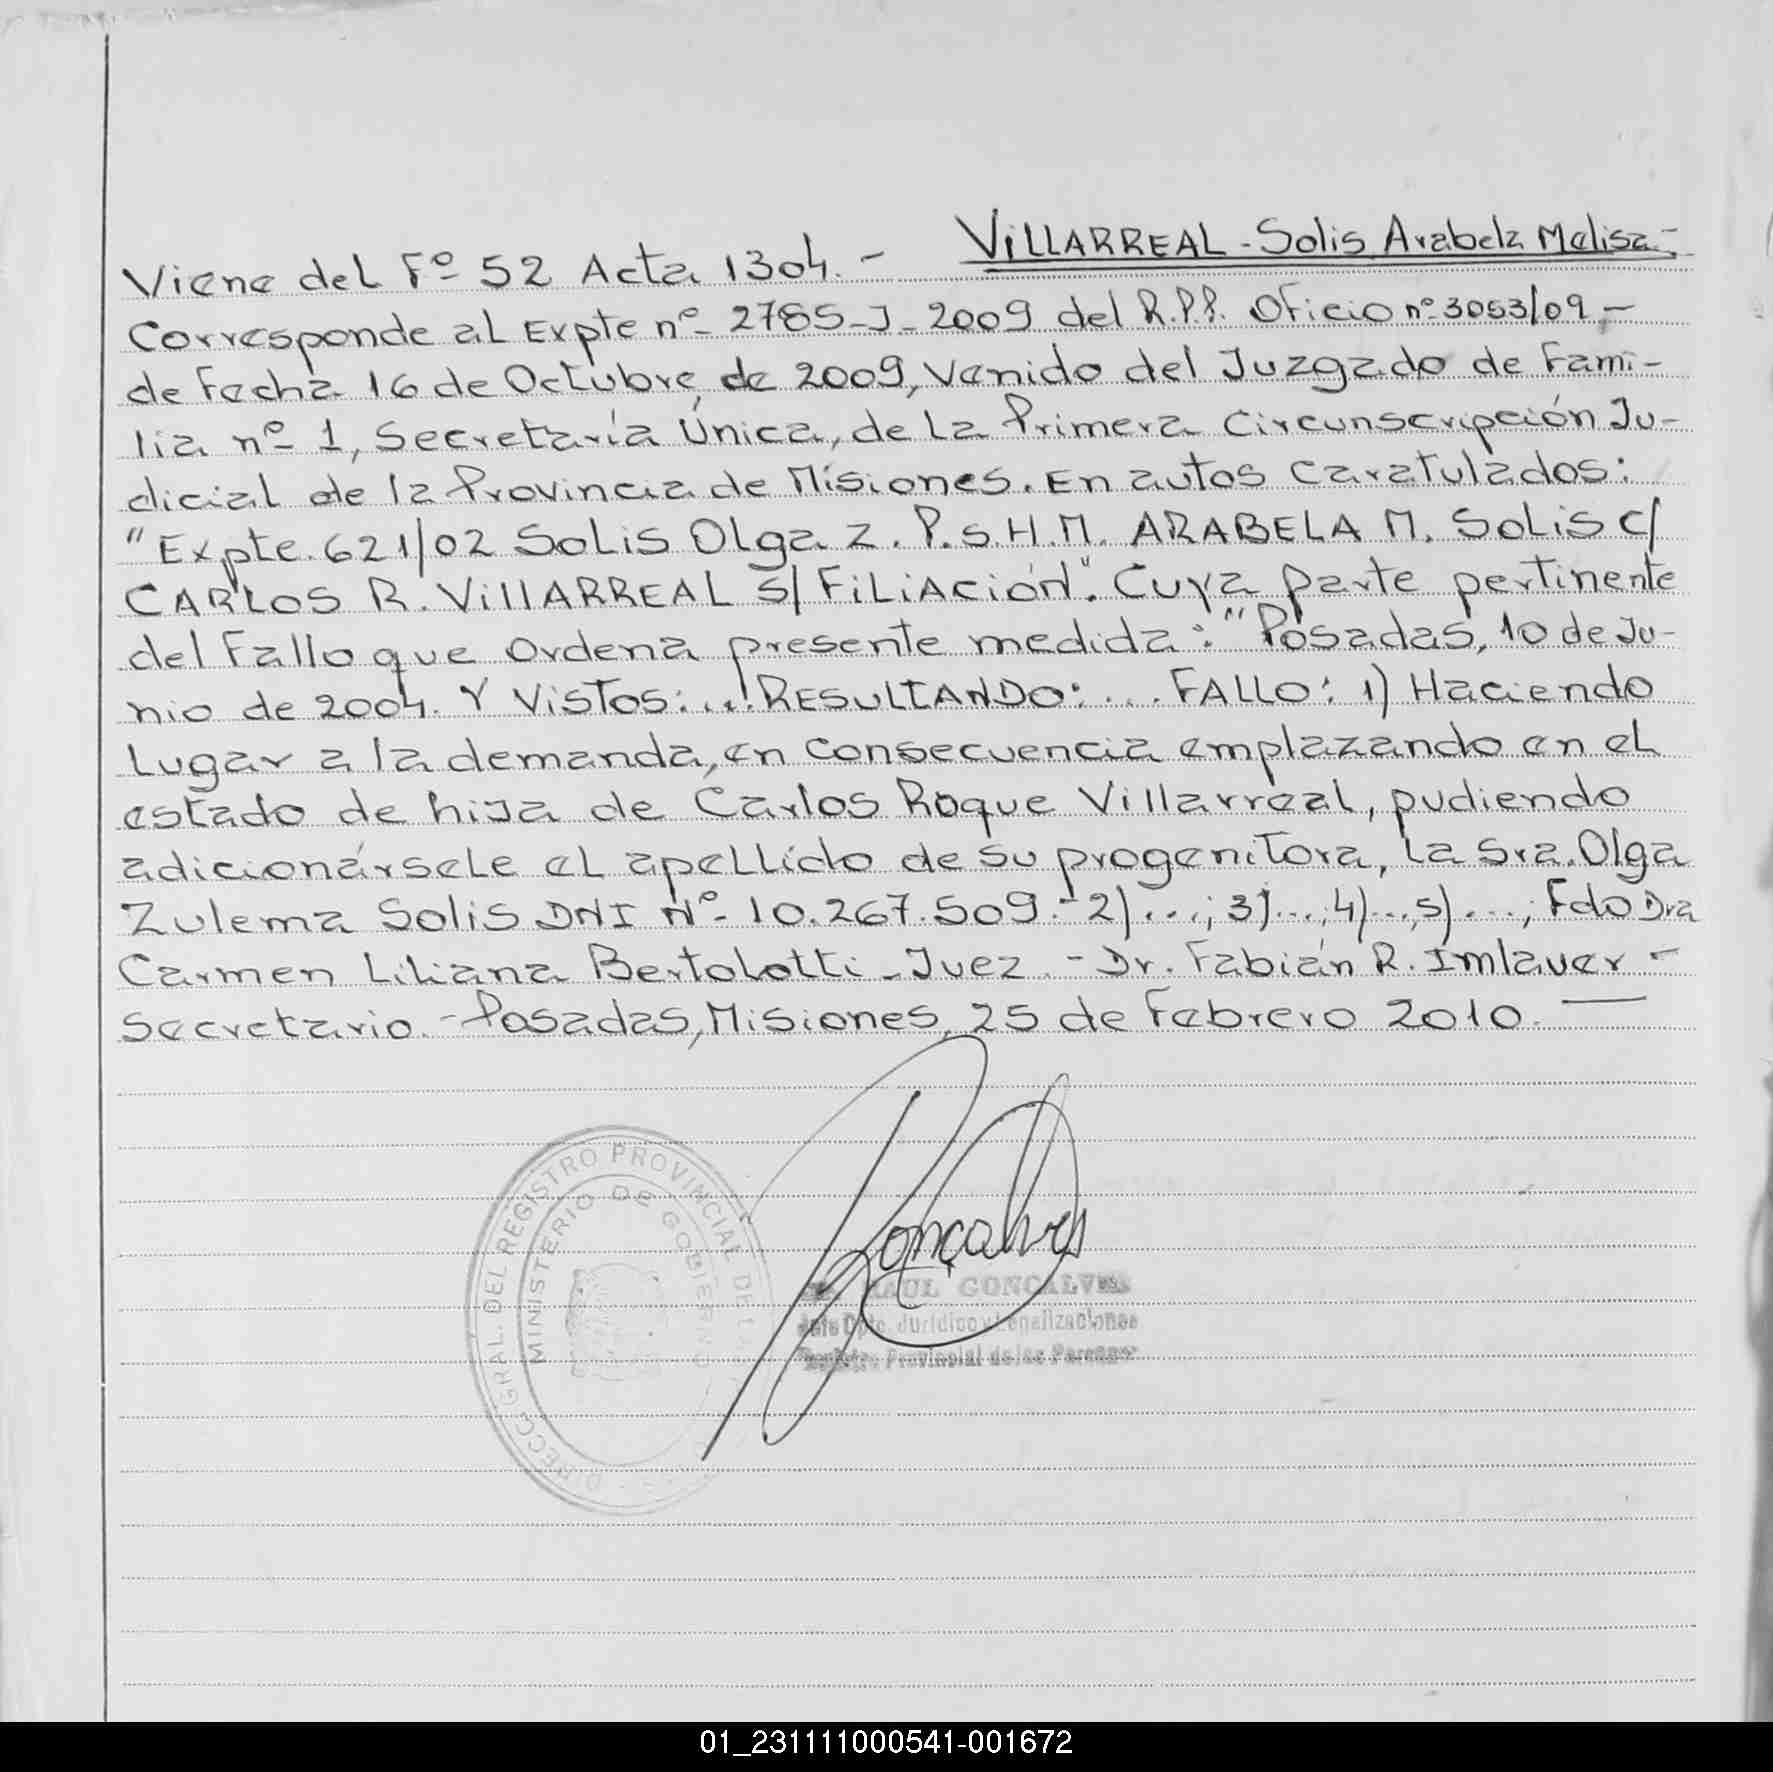 VILLARREAL - Solis Arabela Melisa.-
Viene del Fº 52 Acta 1304.-
Corresponde al Expte nº- 2785-J-2009 del R.P.P. Oficio nº-3053/09.-
de Fecha 16 de Octubre de 2009, Venido del Juzgado de Fami-
lia nº- 1, Secretaría Única, de La Primera Circunscripción Ju-
dicial de la Provincia de Misiones. En autos Caratulados:
"Expte. 621/02 Solis Olga Z. P.S.H.M. ARABELA M. Solis C/
CARLOS R. VillARREAL S/ FiLiACión". Cuya parte pertinente
del Fallo que Ordena presente medida: "Posadas, 10 de Ju-
nio de 2004. Y VISTOS:...!RESULTANDO:... FALLO: 1) Haciendo
Lugar a la demanda, en consecuencia emplazando en el
estado de hija de Carlos Roque Villarreal, pudiendo
adicionársele el apellido de su progenitora, la Sra. Olga
Zulema Solis DNI Nº- 10.267.509.- 2)...; 3)...; 4)..., 5)....; Fdo Dra
Carmen Liliana Bertolotti - Juez.- Dr. Fabián R. Imlauer -
Secretario.- Posadas, Misiones, 25 de Febrero 2010.
DIRECC. GRAL. DEL REGISTRO PROVINCIAL DE LA
MINISTERIO DE GOBIERNO
Gonçalves
RAUL GONCALVES
Jefe Dpto. Jurídico y Legalizaciones
Registro Provincial de las Personas
01_231111000541-001672